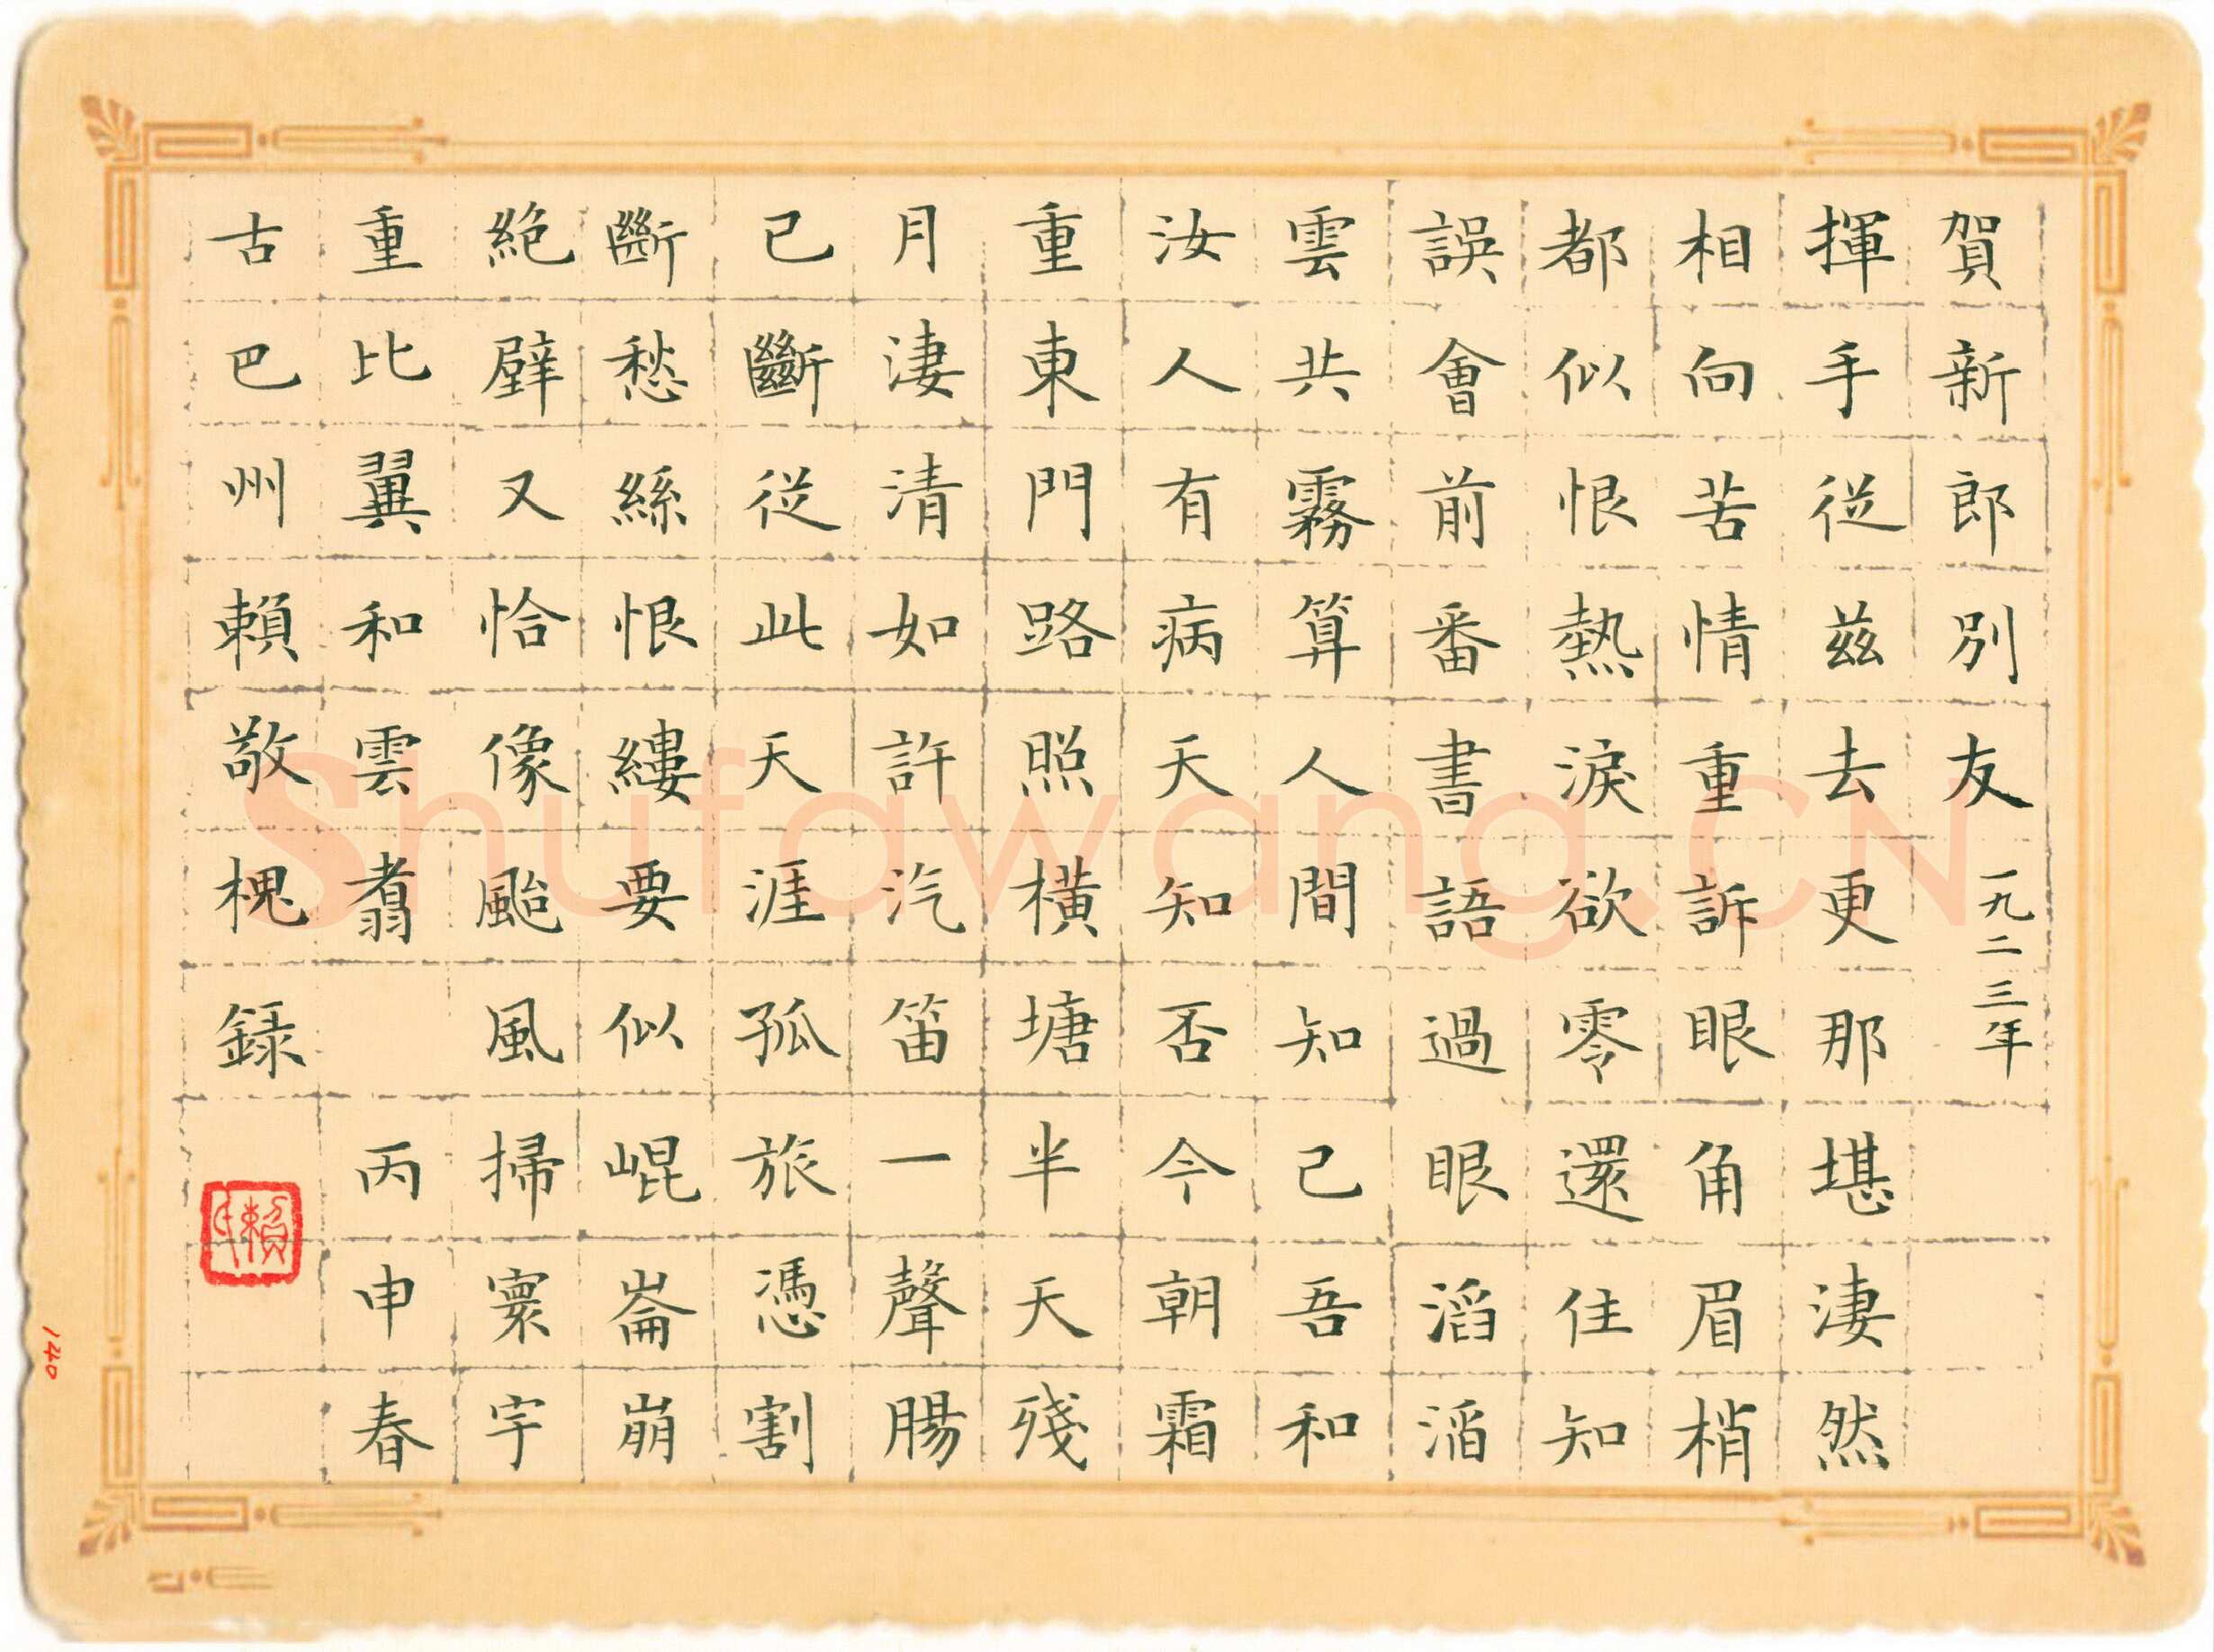 賀新郎別友 一九二三年
揮手從茲去更那堪淒然
相向苦情重訴眼角眉梢
都似恨熱淚欲零還住知
誤會前番書語過眼滔滔
雲共霧算人間知己吾和
汝人有病天知否今朝霜
重東門路照橫塘半天殘
月淒清如許汽笛一聲腸
已斷從此天涯孤旅憑割
斷愁絲恨縷要似崐崙崩
絕壁又恰像颱風掃寰宇
重比翼和雲翥 丙申春
古巴州賴敬槐錄
140
Shufawang.CN